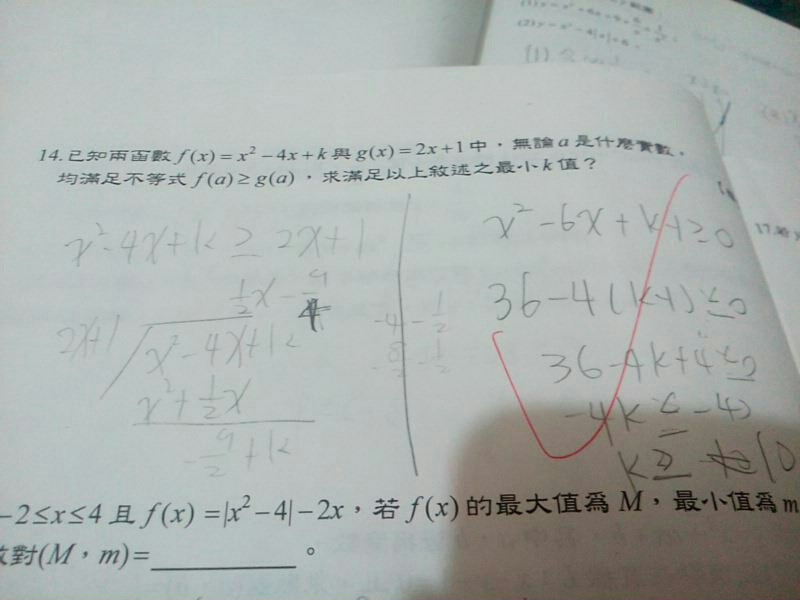 14.已知兩函數 f(x)=x²-4x+k 與 g(x)=2x+1中，無論a是什麼實數，
均滿足不等式 f(a)≥g(a)，求滿足以上敘述之最小k值？
x²-4x+k≥2x+1
2x+1
x²-4x+k
x²+½x
x²-6x+k-1≥0
36-4(k-1)≤0
36-4k+4≤0
-4k≤-40
k≥10
-2≤x≤4 且 f(x)=|x²-4|-2x，若 f(x) 的最大值為 M，最小值為m
對(M，m)=________。
17.若